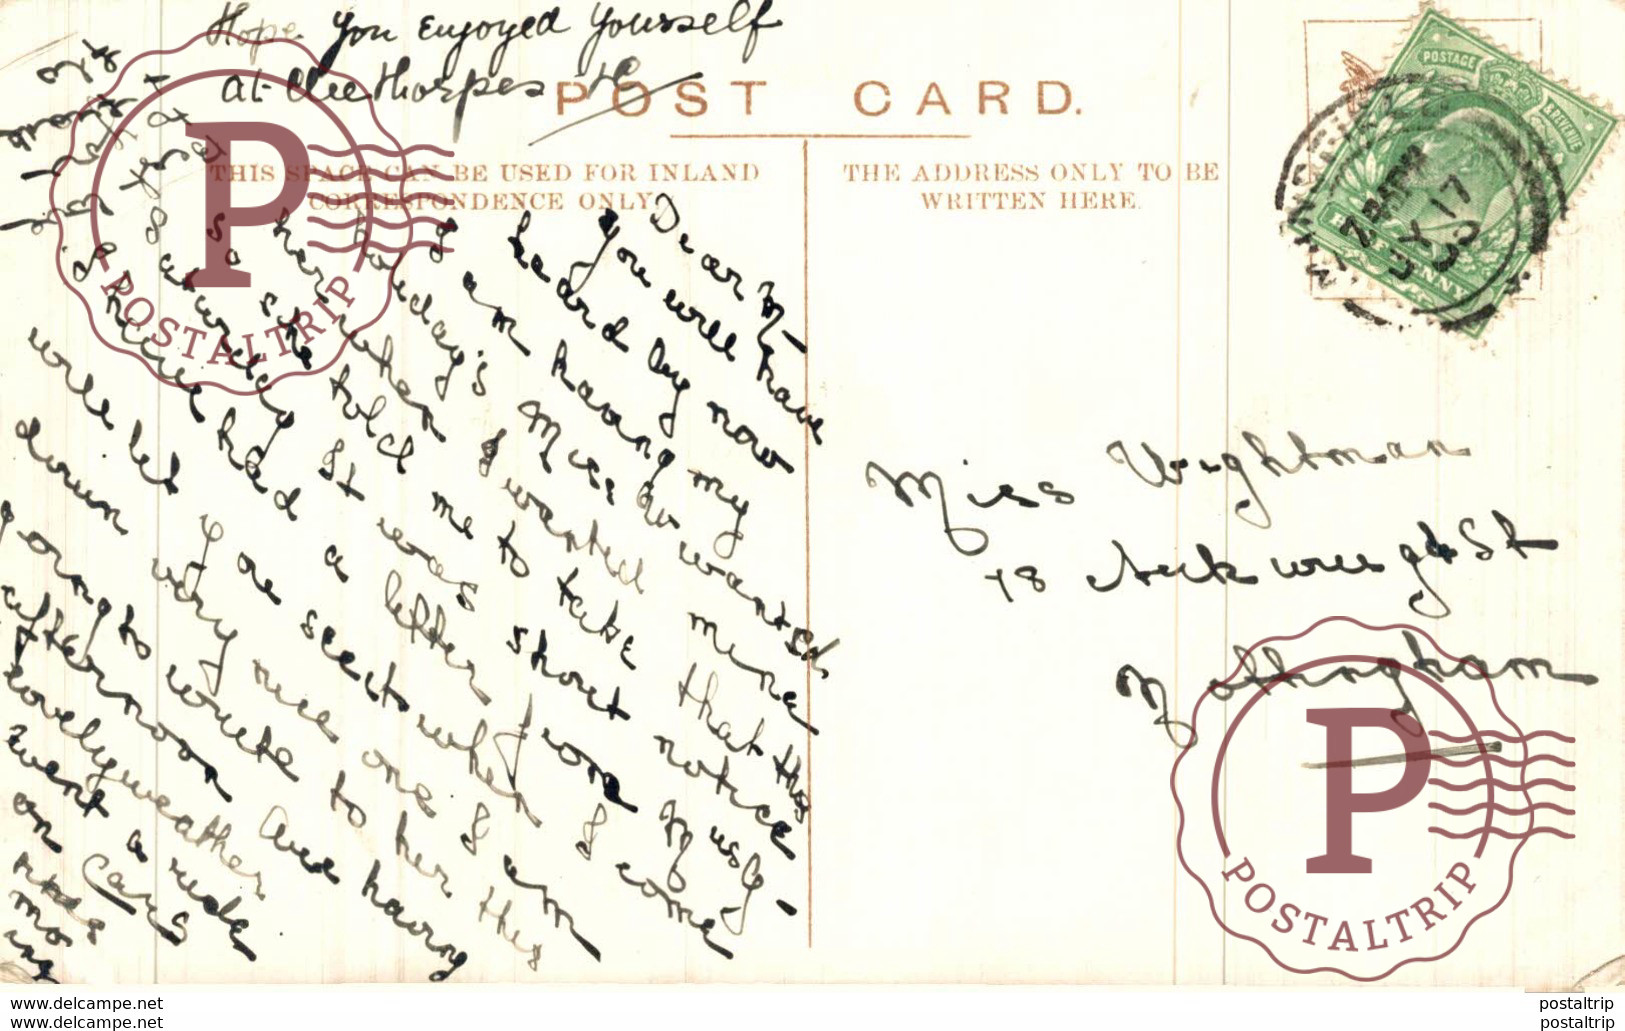 Hope you enjoyed yourself
at Cleethorpes
POST CARD.
THIS SPACE CAN BE USED FOR INLAND
CORRESPONDENCE ONLY
THE ADDRESS ONLY TO BE
WRITTEN HERE.
POSTAGE
REVENUE
Dear M-
You will have
heard by now
I am having my
holiday's Miss W wanted
her when I wanted mine
so she told me to take that this
Saturday It was short notice
I have had a letter from
will let you see it when I come
down very nice one I am
going to write to her this
afternoon Are having
lovely weather
went a ride
on Cars
this
mo
ing
Miss Wightman
78 Arkwright St
Nottingham
P
POSTALTRIP
P
POSTALTRIP
www.delcampe.net
www.delcampe.net
postaltrip
postaltrip